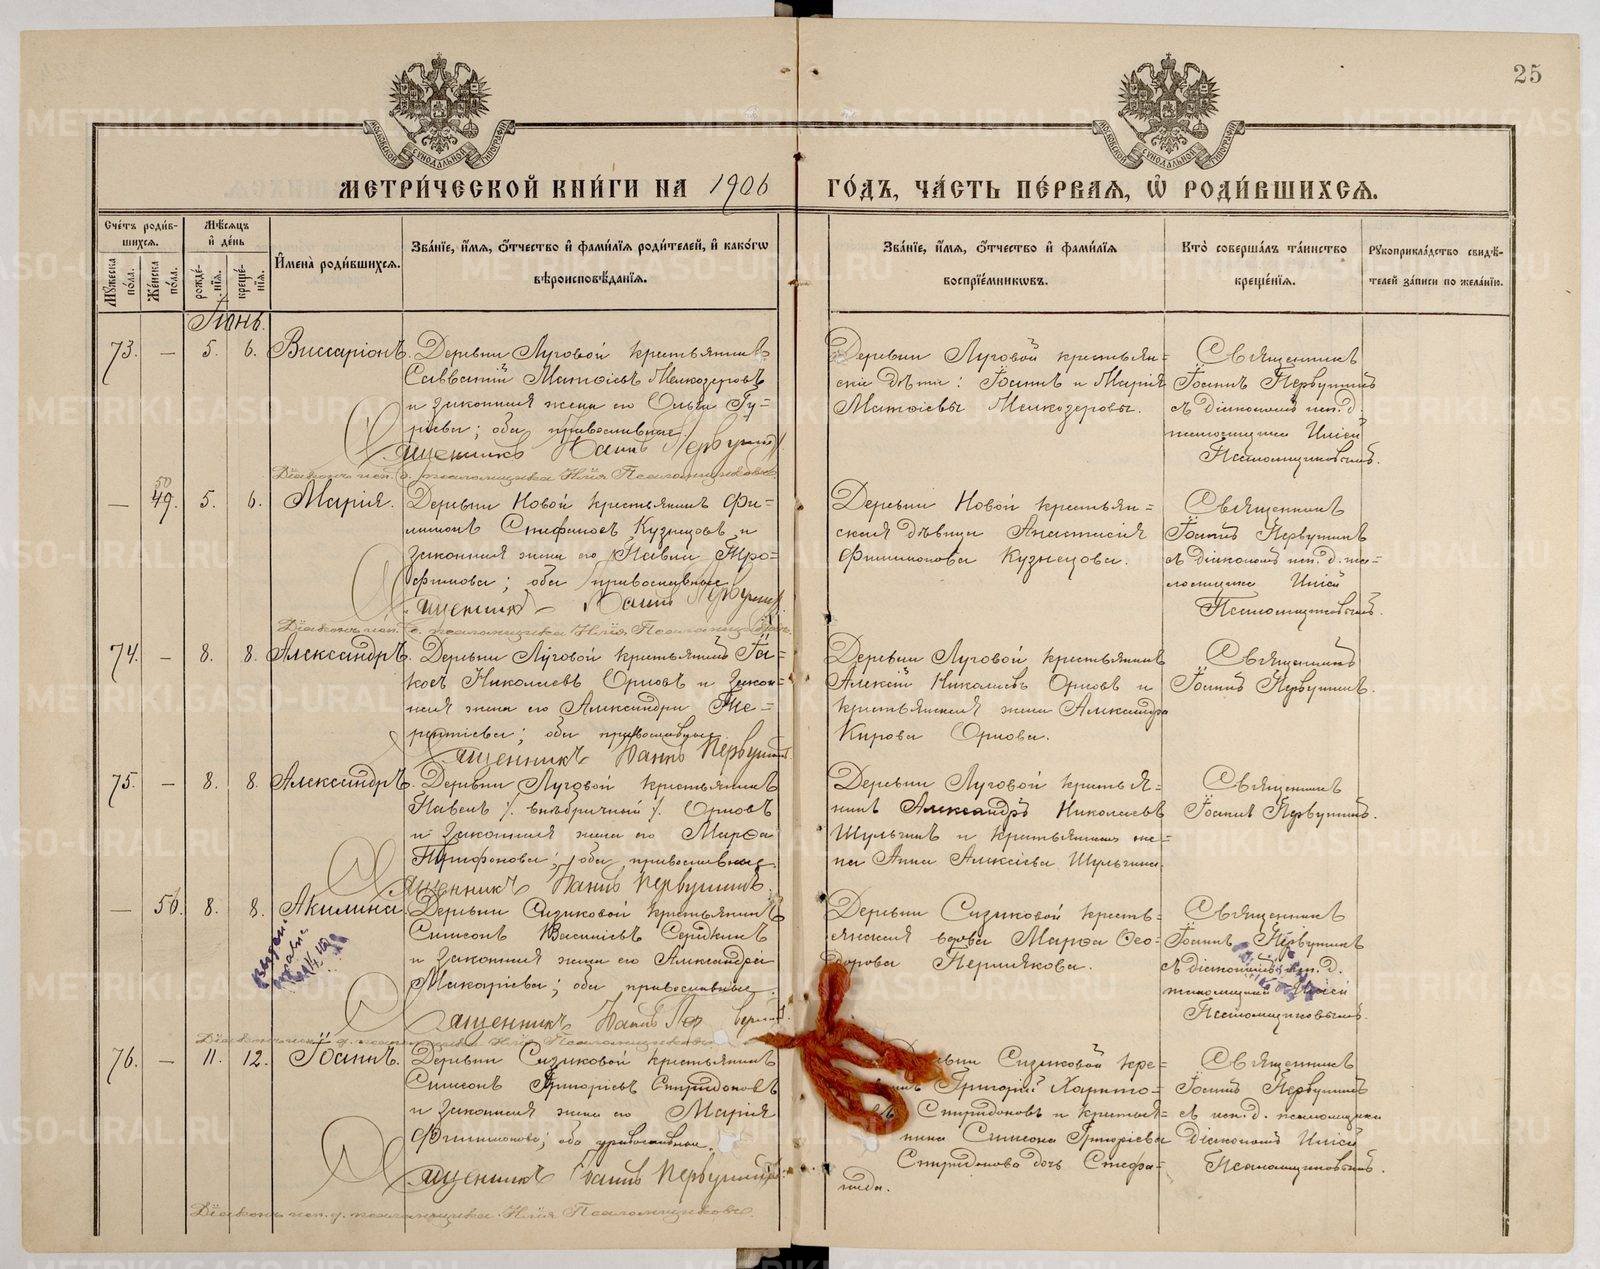 25
МОСКОВСКОЙ СѴНОДАЛЬНОЙ ТИПОГРАФІИ
МОСКОВСКОЙ СѴНОДАЛЬНОЙ ТИПОГРАФІИ
МЕТРИ́ЧЕСКОЙ КНИ́ГИ НА 1906 ГО́ДЪ, ЧА́СТЬ ПЕ́РВАЯ, Ѡ҆ РОДИ́ВШИХСЯ.
Сче́тъ роди́в-
шихся.
Мꙋ́жеска по́ла.
Же́нска по́ла.
Мѣ́сяцъ
и҆ де́нь
рожде́-
нїя.
креще́-
нїя.
И҆мена̀ роди́вшихся.
Зва́нїе, и҆́мя, ѻ҆́тчество и҆ фами́лїя роди́телей, и҆ како́гѡ
вѣроисповѣ́данїя.
Зва́нїе, и҆́мя, ѻ҆́тчество и҆ фами́лїя
воспрїе́мникѡвъ.
Кто̀ соверша́лъ та́инство
креще́нїя.
Рꙋкоприкла́дство свидѣ́-
телей за́писи по жела́нїю.
Іюнь.
73. — 5. 6. Виссаріонъ.
Деревни Луговой крестьянинъ
Савватій Матѳіевъ Мелкозеровъ
и законная жена его Ольга Гу-
ріева; оба православные.
Священникъ Іоаннъ Первушинъ
Діаконъ исп. д. псаломщика Илія Псаломщиковъ
Деревни Луговой крестьян-
скіе дѣти: Іоаннъ и Марія
Матѳіевы Мелкозеровы.
Священникъ
Іоаннъ Первушинъ
съ діакономъ исп. д.
псаломщика Иліей
Псаломщиковымъ.
— 50 49. 5. 6. Марія.
Деревни Новой крестьянинъ Фи-
лимонъ Стефановъ Кузнецовъ и
законная жена его Павла Тро-
фимова; оба православные
Священникъ Іоаннъ Первушинъ
Діаконъ исп. д. псаломщика Илія Псаломщиковъ.
Деревни Новой крестьян-
ская дѣвица Анастасія
Филимонова Кузнецова.
Священникъ
Іоаннъ Первушинъ
съ діакономъ исп. д. пса-
ломщика Иліей
Псаломщиковымъ.
74. — 8. 8. Александръ.
Деревни Луговой крестьянинъ Іа-
ковъ Николаевъ Орловъ и закон-
ная жена его Александра Те-
рентіева; оба православные.
Священникъ Іоаннъ Первушинъ
Деревни Луговой крестьянинъ
Алексій Николаевъ Орловъ и
крестьянская жена Александра
Кирова Орлова.
Священникъ
Іоаннъ Первушинъ.
75. — 8. 8. Александръ.
Деревни Луговой крестьянинъ
Павелъ /. внѣбрачный /. Орловъ
и законная жена его Марѳа
Трифонова; оба православные
Священникъ Іоаннъ Первушинъ.
Деревни Луговой крестья-
нинъ Александръ Николаевъ
Шульгинъ и крестьянская же-
на Анна Алексіева Шульгина.
Священникъ
Іоаннъ Первушинъ.
— 51. 8. 8. Акилина.
Деревни Сизиковой крестьянинъ
Симеонъ Василіевъ Середкинъ
и законная жена его Александра
Макаріева; оба православные.
Священникъ Іоаннъ Первушинъ.
Діаконъ исп. д. псаломщика Илія Псаломщиковъ.
Деревни Сизиковой кресть-
янская вдова Марѳа Ѳео-
дорова Пермякова.
Священникъ
Іоаннъ Первушинъ
съ діакономъ исп. д.
псаломщика Иліей
Псаломщиковымъ.
76. — 11. 12. Іоаннъ.
Деревни Сизиковой крестьянинъ
Симеонъ Григоріевъ Спиридоновъ
и законная жена его Марія
Филимонова; оба православные.
Священникъ Іоаннъ Первушинъ.
Діаконъ исп. д. псаломщика Илія Псаломщиковъ.
Сизиковой кре-
Григорій Харито-
Спиридоновъ и крестья-
нина Симеона Григоріева
Спиридонова дочь Стефа-
нида.
Священникъ
Іоаннъ Первушинъ
съ исп. д. псаломщика
діакономъ Иліей
Псаломщиковымъ.
METRIKI.GASO-URAL.RU